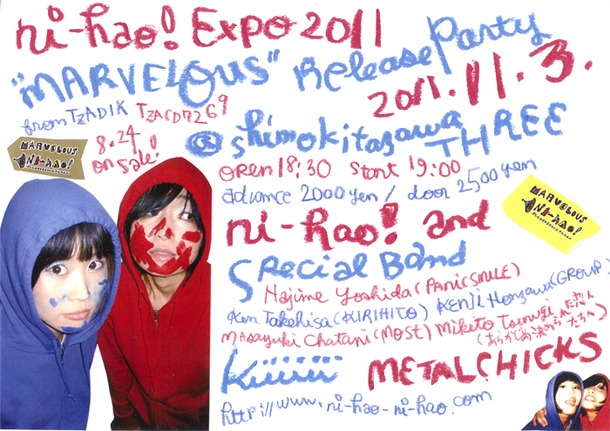 ni-hao! Expo 2011
"MARVELOUS" Release Party
from TZADIK TZACD7269
2011.11.3.
8.24
on sale!
@ shimokitazawa THREE
OPEN 18:30 Start 19:00
advance 2000 yen / door 2500 yen
MARVELOUS
NI-HAO!
MARVELOUS
NI-HAO!
ni-hao! and
Special Band
Hajime Yoshida (PANICSMILE)
Ken Takehisa (KIRIHITO) KENJI (GROUP)
MASAYUKI Chatani (MOST) Mikito
METALCHICKS
http://www.ni-hao-ni-hao.com